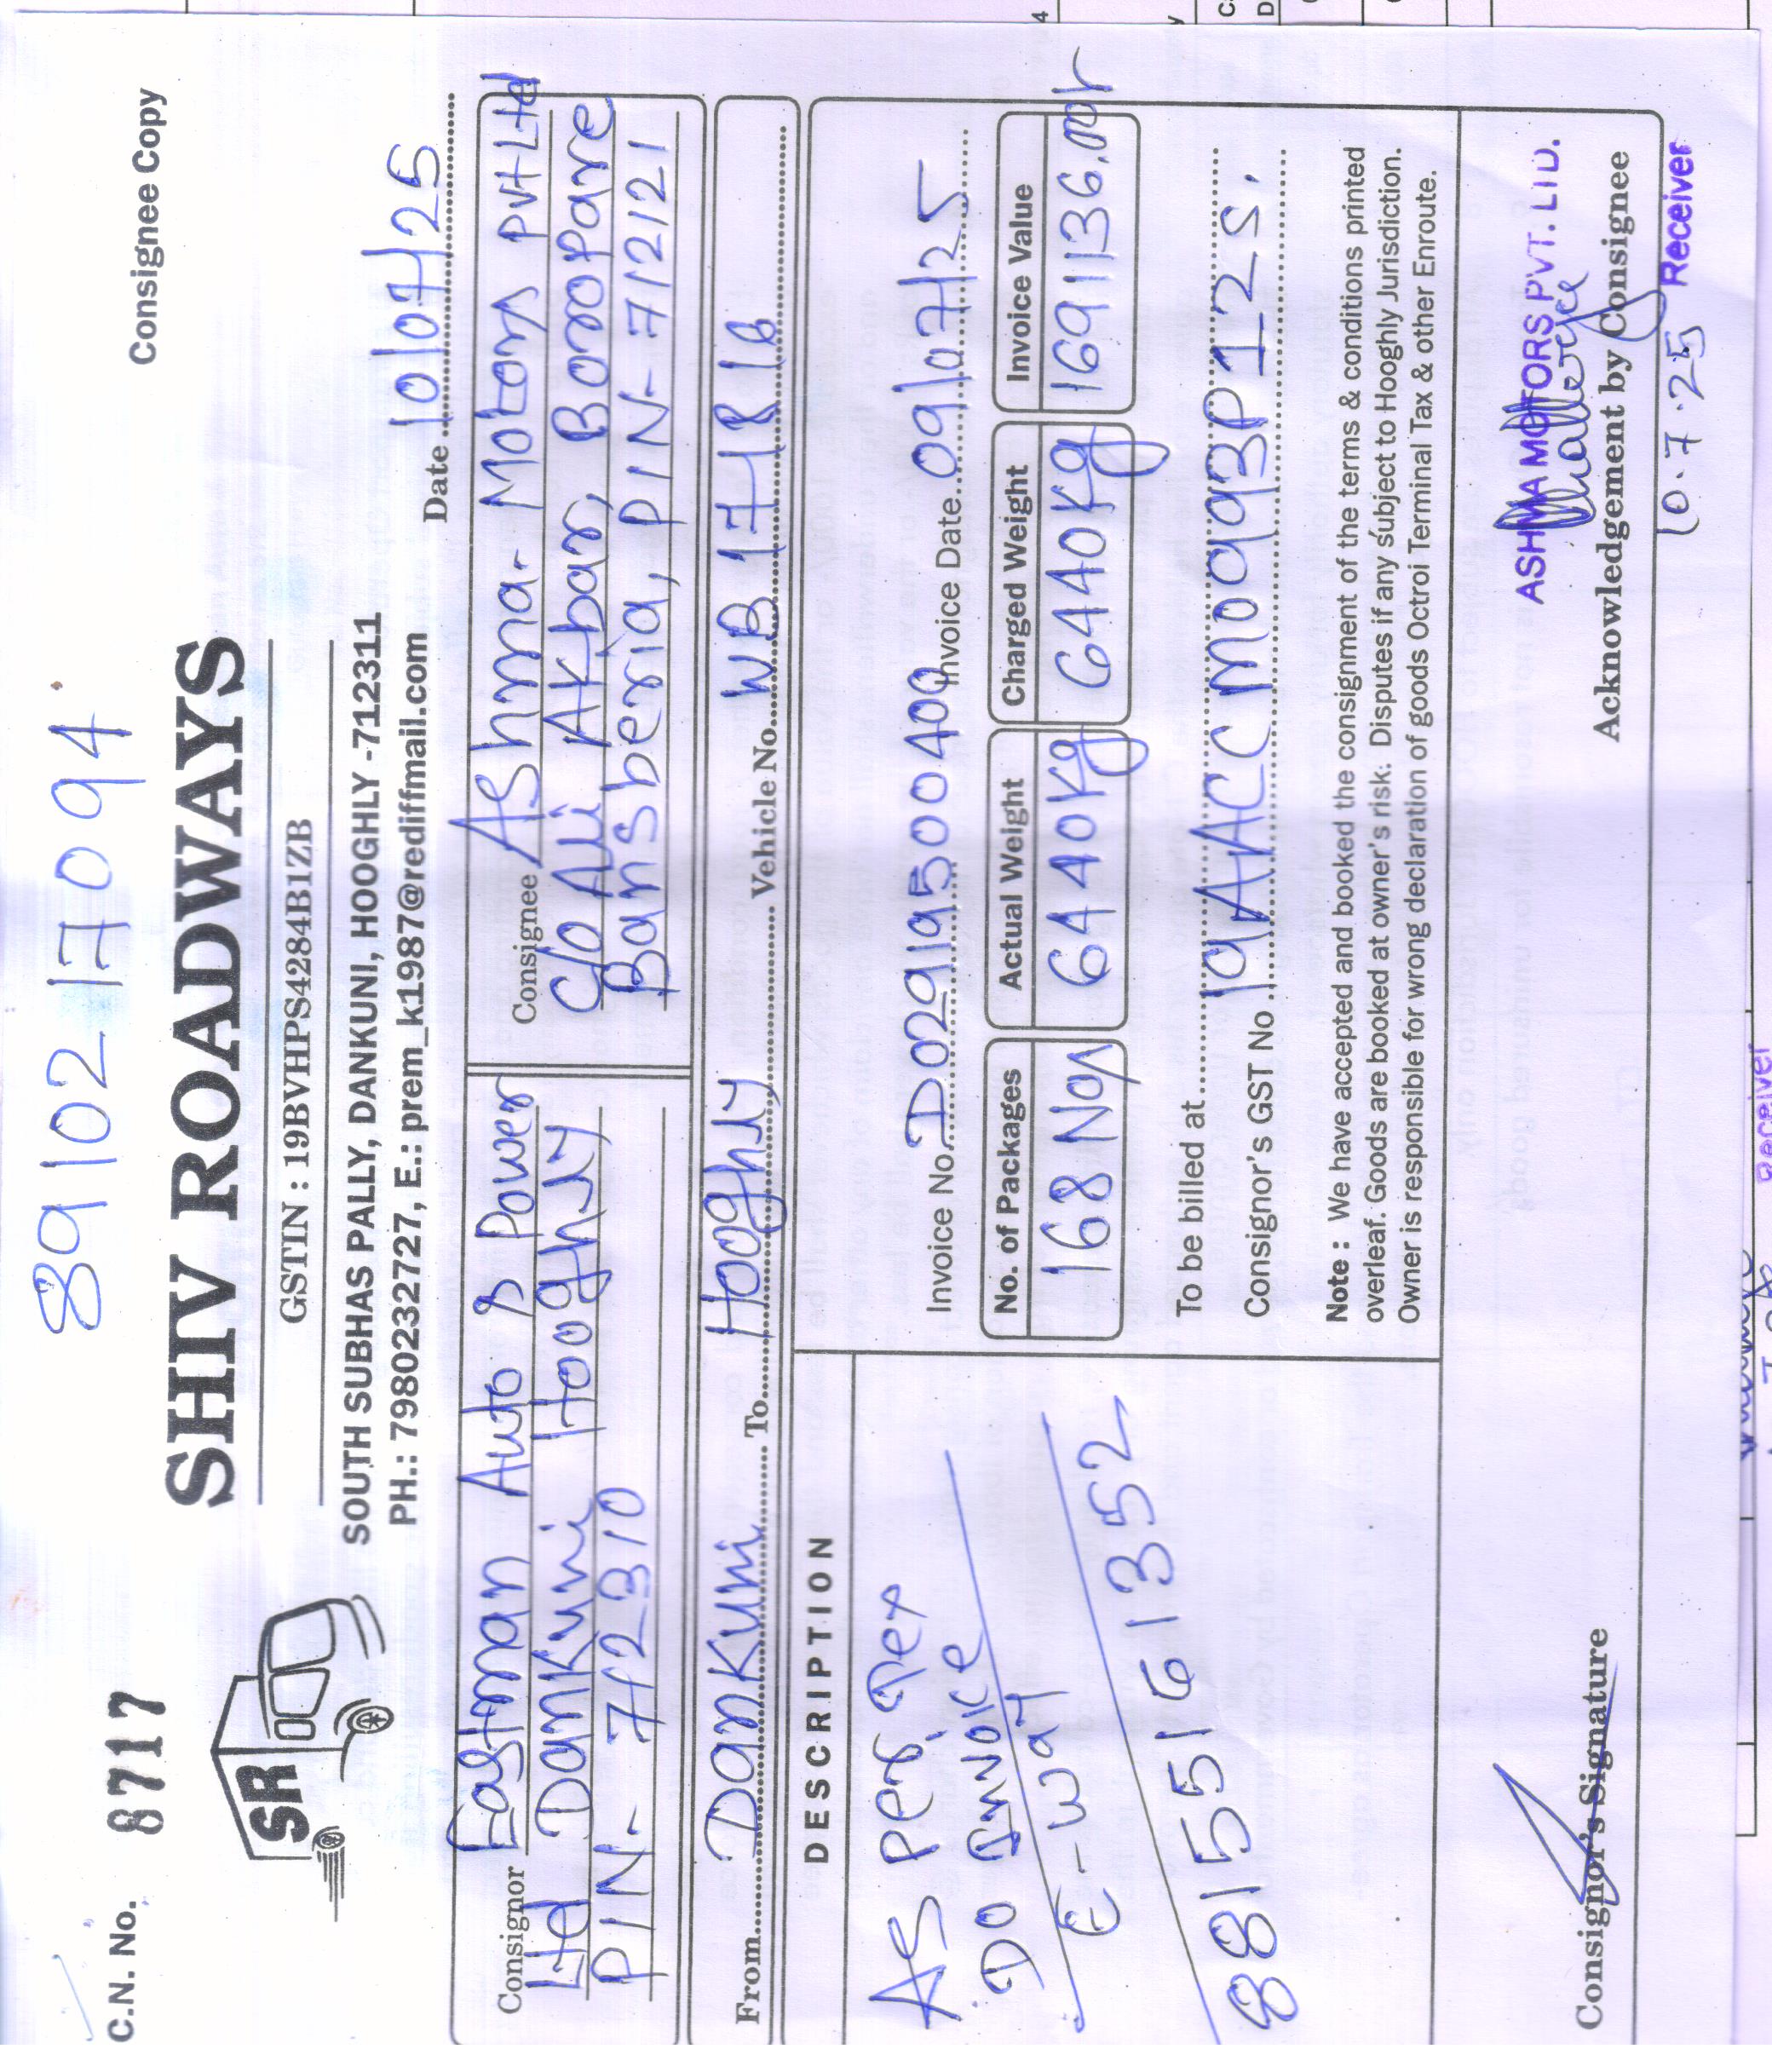 8910217094
C.N. No. 8717
Consignee Copy
SR
SHIV ROADWAYS
GSTIN : 19BVHPS4284B1ZB
SOUTH SUBHAS PALLY, DANKUNI, HOOGHLY -712311
PH.: 7980232727, E.: prem_k1987@rediffmail.com
Date 10/07/25
Consignor Eastman Auto & Power
Ltd Dankuni Hooghly
PIN- 712310
Consignee Ashma Motors PVt Ltd
C/o Ali Akbar, Boropare
Bansberia, PIN-712121
From Dankuni To Hooghly Vehicle No. WB 17-1816
DESCRIPTION
As Per
DO Invoice
E-Way
88155161352
Invoice No. D02919500409 Invoice Date 09/07/25
No. of Packages Actual Weight Charged Weight Invoice Value
168 Nos 6440Kg 6440Kg 1691136.00
To be billed at
Consignor's GST No 19AACCM0993P1ZS.
Note : We have accepted and booked the consignment of the terms & conditions printed
overleaf. Goods are booked at owner's risk. Disputes if any subject to Hooghly Jurisdiction.
Owner is responsible for wrong declaration of goods Octroi Terminal Tax & other Enroute.
ASHMA MOTORS PVT. LTD.
Consignor's Signature
Acknowledgement by Consignee
10.7.25
Receiver
Receiver